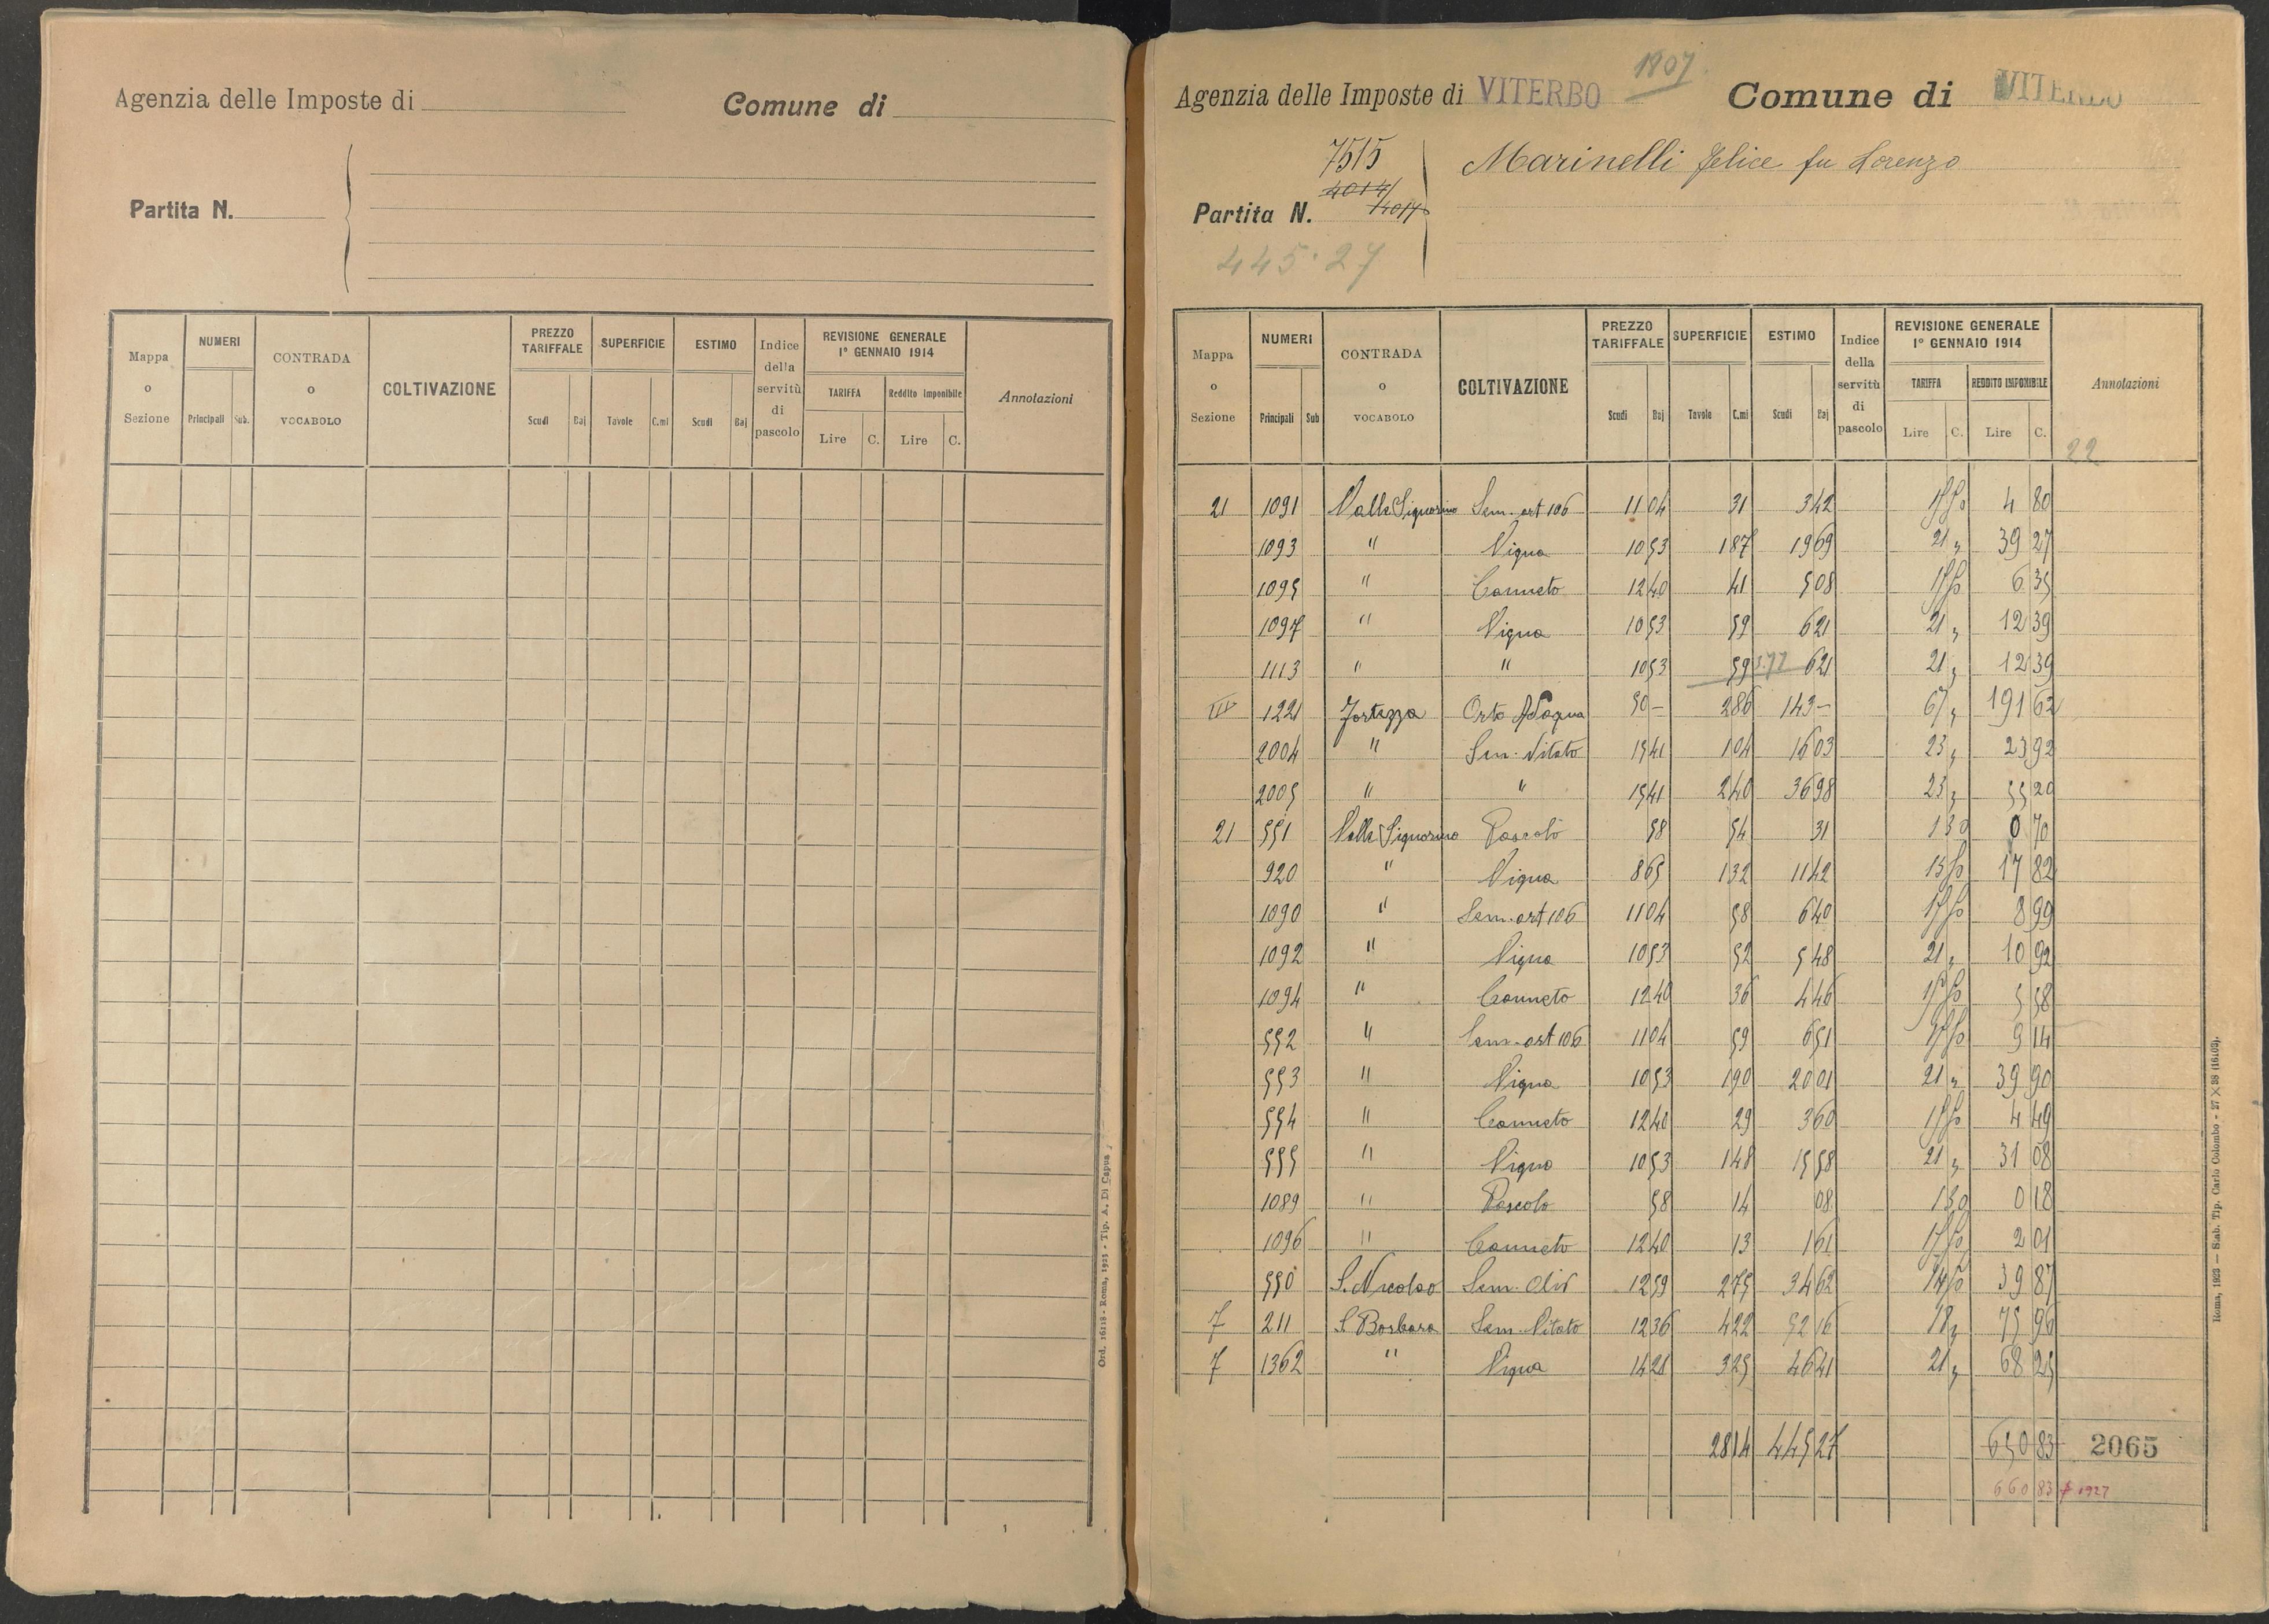 Agenzia delle Imposte di
Comune di
Partita N.
Mappa o Sezione | NUMERI Principali Sub. | CONTRADA o VOCABOLO | COLTIVAZIONE | PREZZO TARIFFALE Scudi Baj | SUPERFICIE Tavole C.mi | ESTIMO Scudi Baj | Indice della servitù di pascolo | REVISIONE GENERALE 1° GENNAIO 1914 TARIFFA Lire C. Reddito Imponibile Lire C. | Annotazioni
Ord. 16118 - Roma, 1921 - Tip. A. Di Capua
1807
Agenzia delle Imposte di VITERBO Comune di VITERBO
7515
4014
Partita N. 14014
Marinelli Felice fu Lorenzo
445.27
Mappa o Sezione | NUMERI Principali Sub | CONTRADA o VOCABOLO | COLTIVAZIONE | PREZZO TARIFFALE Scudi Baj | SUPERFICIE Tavole C.mi | ESTIMO Scudi Baj | Indice della servitù di pascolo | REVISIONE GENERALE 1° GENNAIO 1914 TARIFFA Lire C. REDDITO IMPONIBILE Lire C. | Annotazioni
22
21 1091 Valle Signorino Sem. art 106 11 04 31 3 42 15 50 4 80
1093 " Vigna 10 53 1 87 19 69 21 " 39 27
1095 " Canneto 12 40 41 5 08 15 50 6 35
1097 " Vigna 10 53 59 6 21 21 " 12 39
1113 " " 10 53 59 3.77 6 21 21 " 12 39
III 1221 Fortezza Orto Adaqua 50 - 2 86 143 - 67 " 191 62
2004 " Sem. Vitato 15 41 1 04 16 03 23 " 23 92
2005 " " 15 41 2 40 36 98 23 " 55 20
21 551 Valle Signorino Pascolo 58 54 31 1 30 0 70
920 " Vigna 8 65 1 32 11 42 13 50 17 82
1090 " Sem. art 106 11 04 58 6 40 15 50 8 99
1092 " Vigna 10 53 52 5 48 21 " 10 92
1094 " Canneto 12 40 36 4 46 15 50 5 58
552 " Sem. art 106 11 04 59 6 51 15 50 9 14
553 " Vigna 10 53 1 90 20 01 21 " 39 90
554 " Canneto 12 40 29 3 60 15 50 4 49
555 " Vigna 10 53 1 48 15 58 21 " 31 08
1089 " Pascolo 58 14 08 1 30 0 18
1096 " Canneto 12 40 13 1 61 15 50 2 01
550 S. Nicolao Sem. Oliv 12 59 2 75 34 62 14 50 39 87
7 211 S Barbara Sem. Vitato 12 36 4 22 52 16 18 " 75 96
7 1362 " Vigna 14 28 3 25 46 41 21 " 68 25
28 14 445 27 650 83 2065
660 83 1927
Roma, 1923 — Stab. Tip. Carlo Colombo - 27 × 38 (16103).